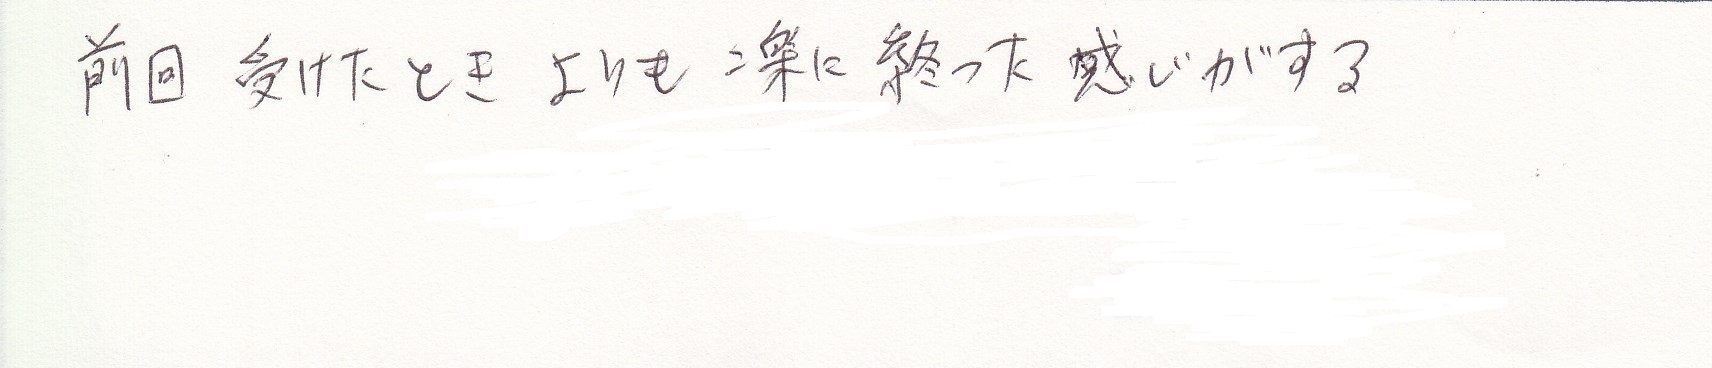 前回 受けたときよりも 楽に 終った 感じがする